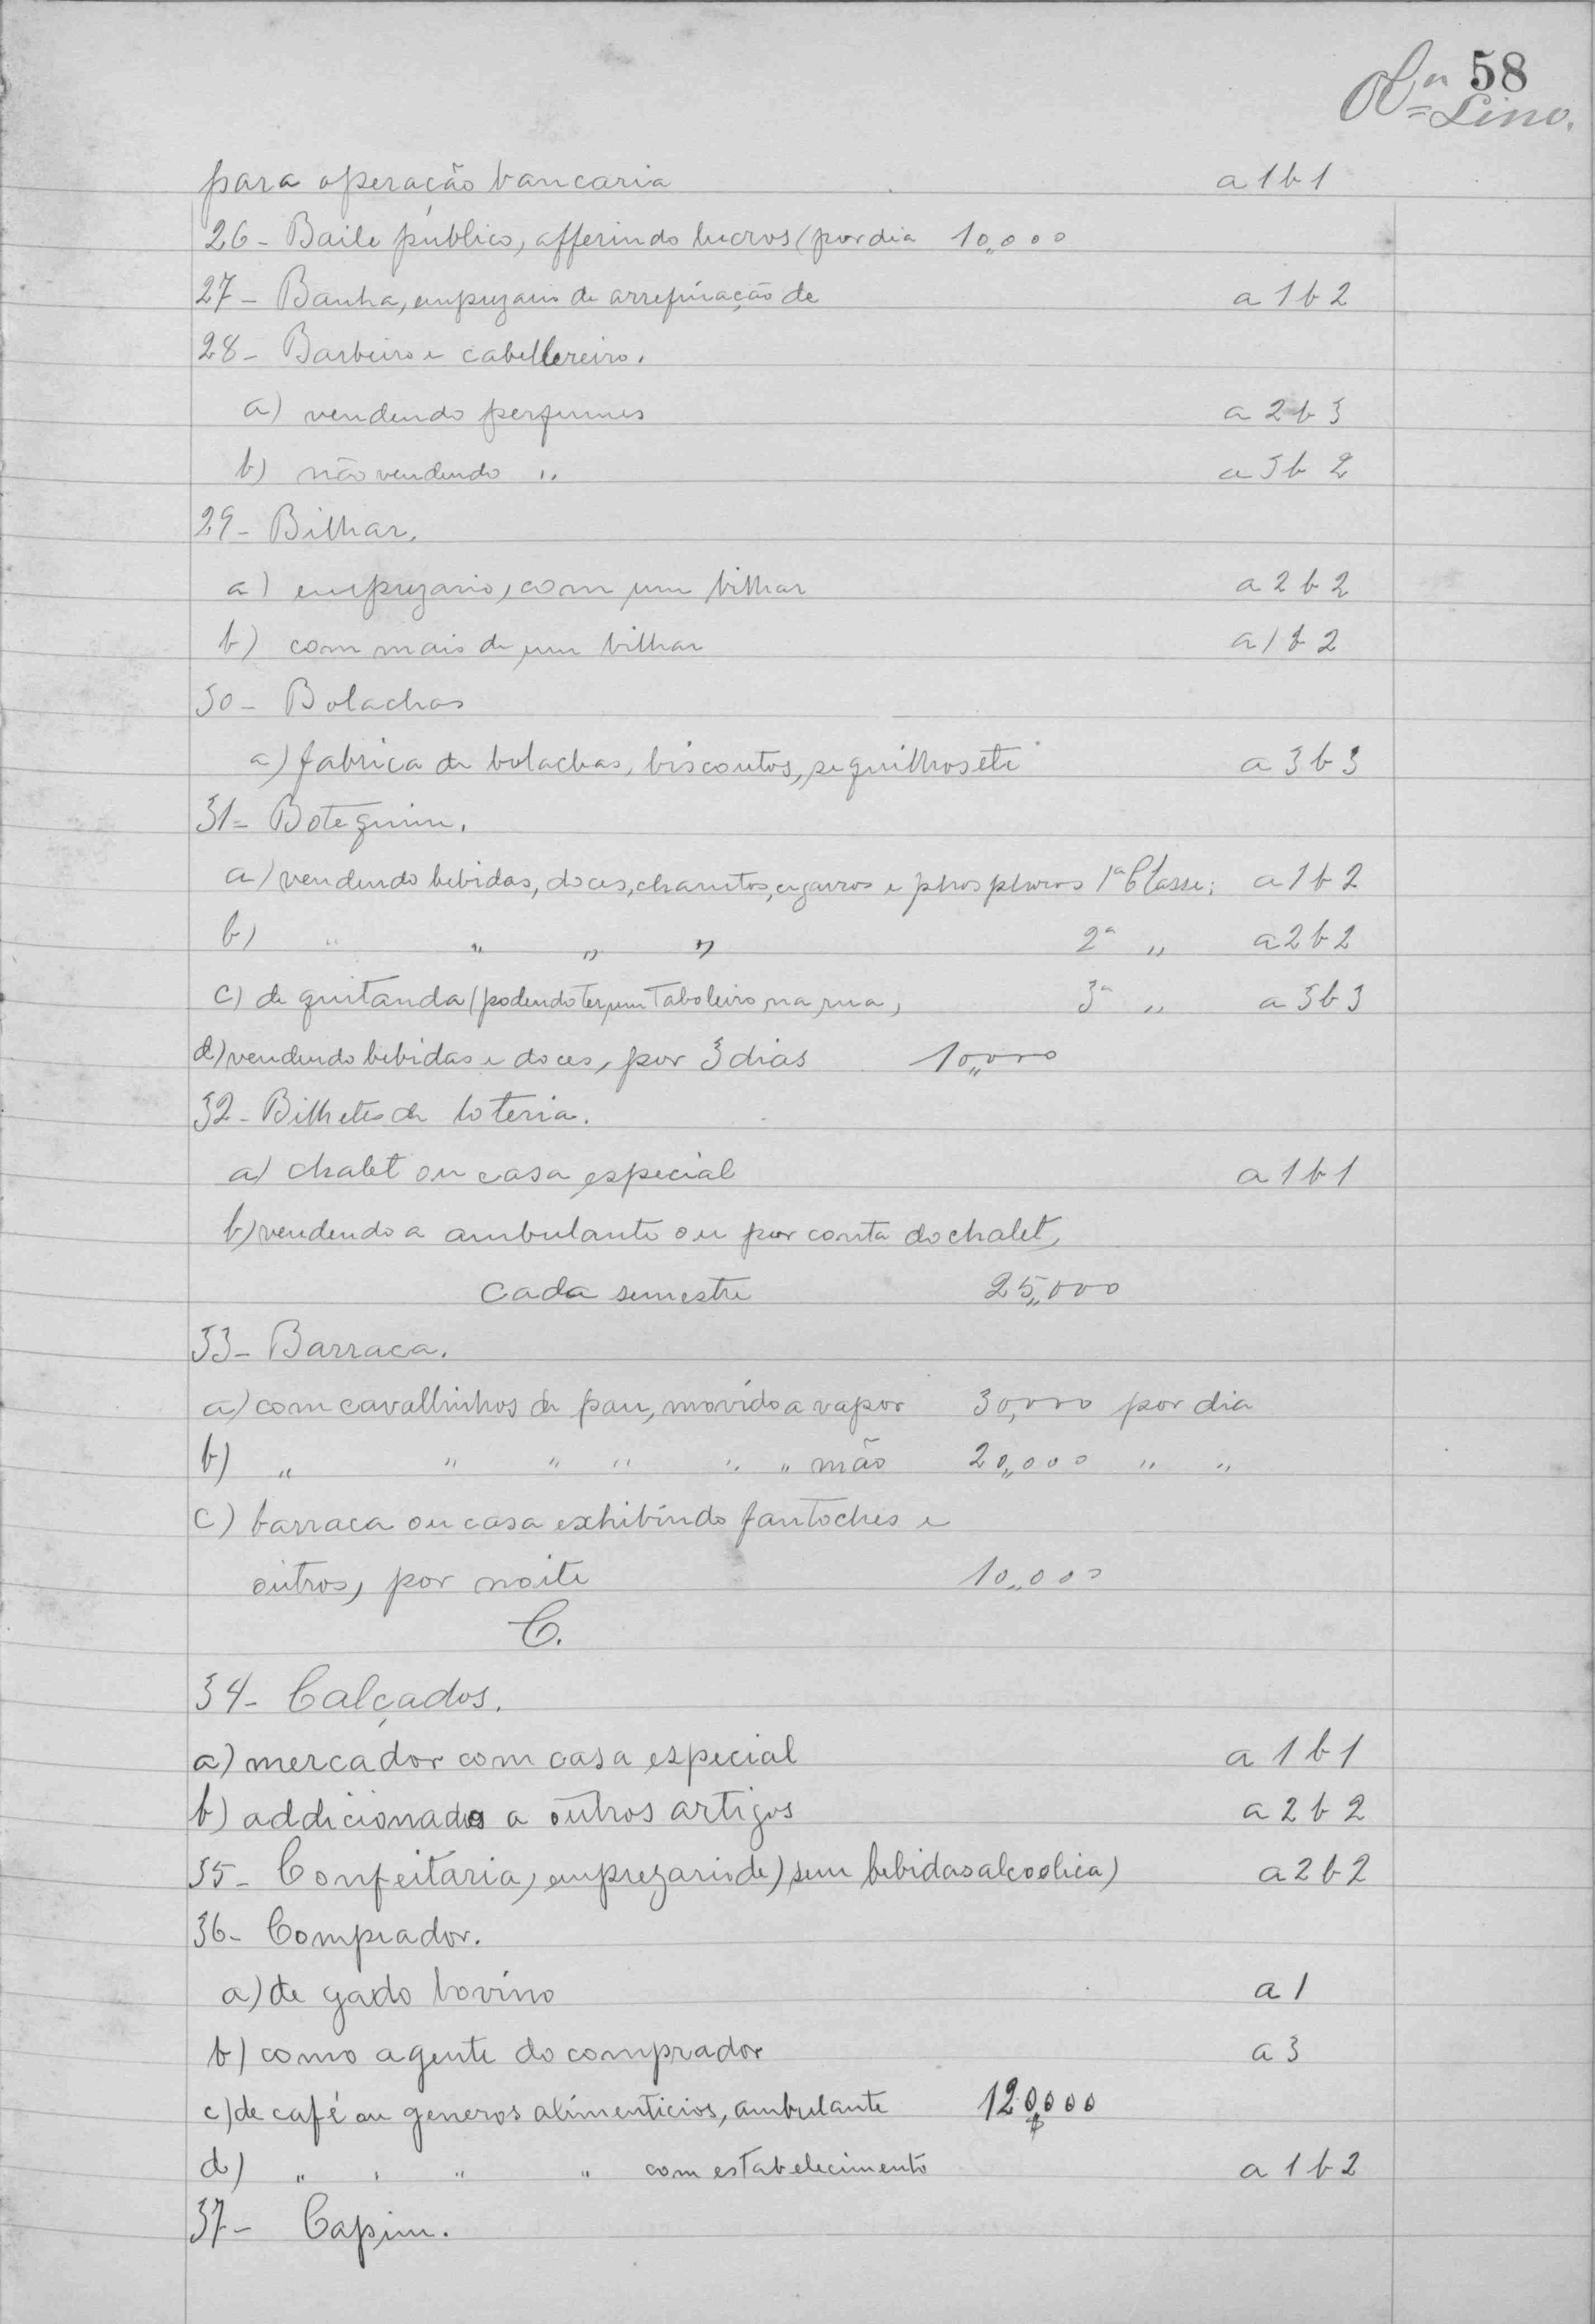 58
Lino.
para operação bancaria a 1 b 1
26 - Baile público, afferindo lucros (por dia 10,,000
27 - Banha, emprezario de arrefinação de a 1 b 2
28 - Barbeiro e cabellereiro.
a) vendendo perfumes a 2 b 3
b) não vendendo ,, a 3 b 2
29 - Bilhar.
a) emprezario, com um bilhar a 2 b 2
b) com mais de um bilhar a 1 b 2
30 - Bolachas
a) fabrica de bolachas, biscoutos, sequilhos etc a 3 b 3
31 = Botequim.
a) vendendo bebidas, doces, charutos, cigarros e phosphoros 1ª Classe; a 1 b 2
b) ,, ,, ,, ,, 2ª ,, a 2 b 2
c) de quitanda (podendo ter um taboleiro na rua, 3ª ,, a 3 b 3
d) vendendo bebidas e doces, por 3 dias 10,,000
32 - Bilhetes de loteria.
a) chalet ou casa especial a 1 b 1
b) vendendo a ambulante ou por conta do chalet,
cada semestre 25,,000
33 - Barraca.
a) com cavallinhos de pau, movido a vapor 30,000 por dia
b) ,, ,, ,, ,, ,, ,, mão 20,,000 ,, ,,
c) barraca ou casa exhibindo fantoches e
outros, por noite 10,,000
C.
34 - Calçados.
a) mercador com casa especial a 1 b 1
b) addicionados a outros artigos a 2 b 2
35 - Confeitaria, emprezario de) sem bebidas alcoolica) a 2 b 2
36 - Comprador.
a) de gado bovino a 1
b) como agente do comprador a 3
c) de café ou generos alimenticios, ambulante 120$000
d) ,, , ,, ,, com estabelecimento a 1 b 2
37 - Capim.